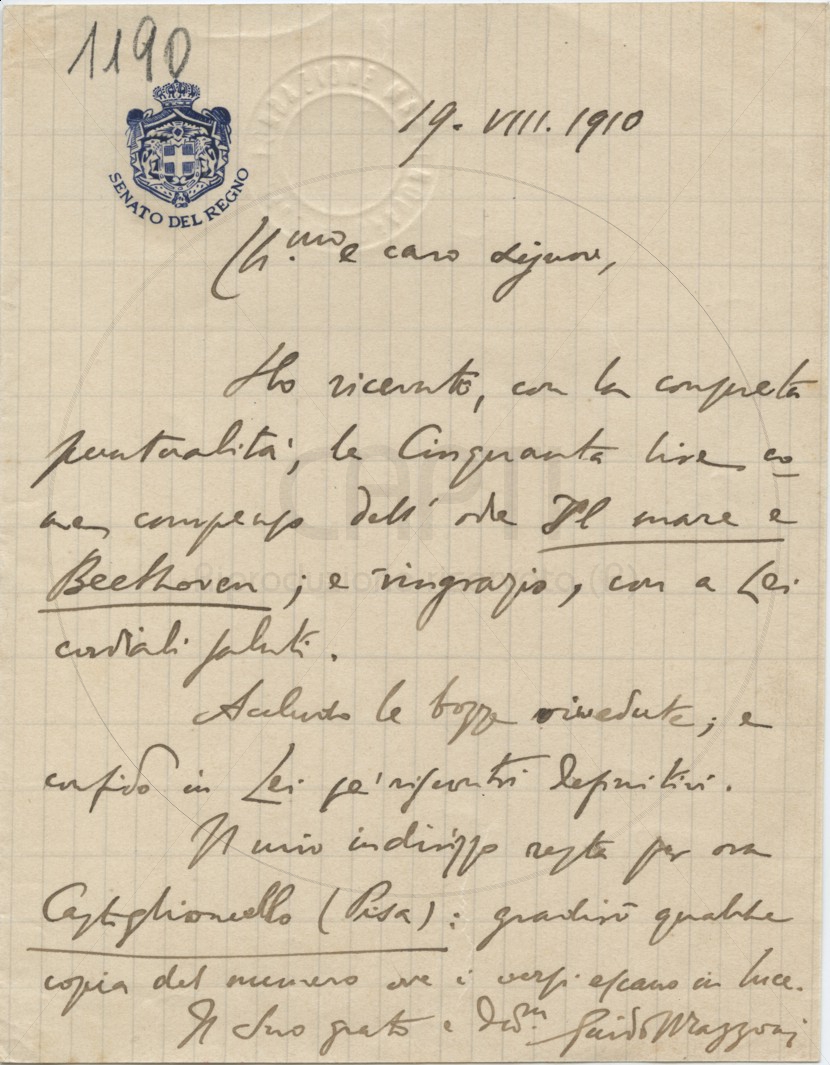 1190
SENATO DEL REGNO
19. VIII. 1910
Ch.mo e caro Signore,
Ho ricevuto, con la consueta
puntualità, le Cinquanta lire co-
me compenso dell'ode Il mare e
Beethoven; e ringrazio, con a Lei
cordiali saluti.
Accludo le bozze rivedute; e
confido in Lei pe' riscontri definitivi.
Il mio indirizzo resta per ora
Castiglioncello (Pisa): gradirò qualche
copia del numero ove i versi escano in luce.
Il Suo grato e Guido Mazzoni